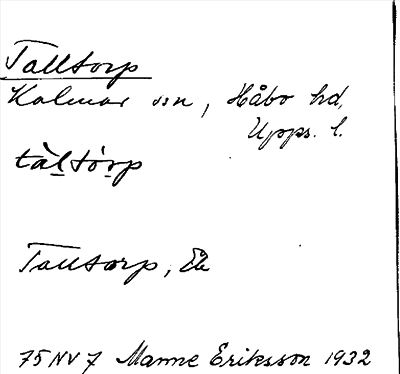 Talltorp
Kalmar sn, Håbo hd,
Upps. l.
tàl̲tór̲p
Talltorp, Ek
75 NV 7 Manne Eriksson 1932